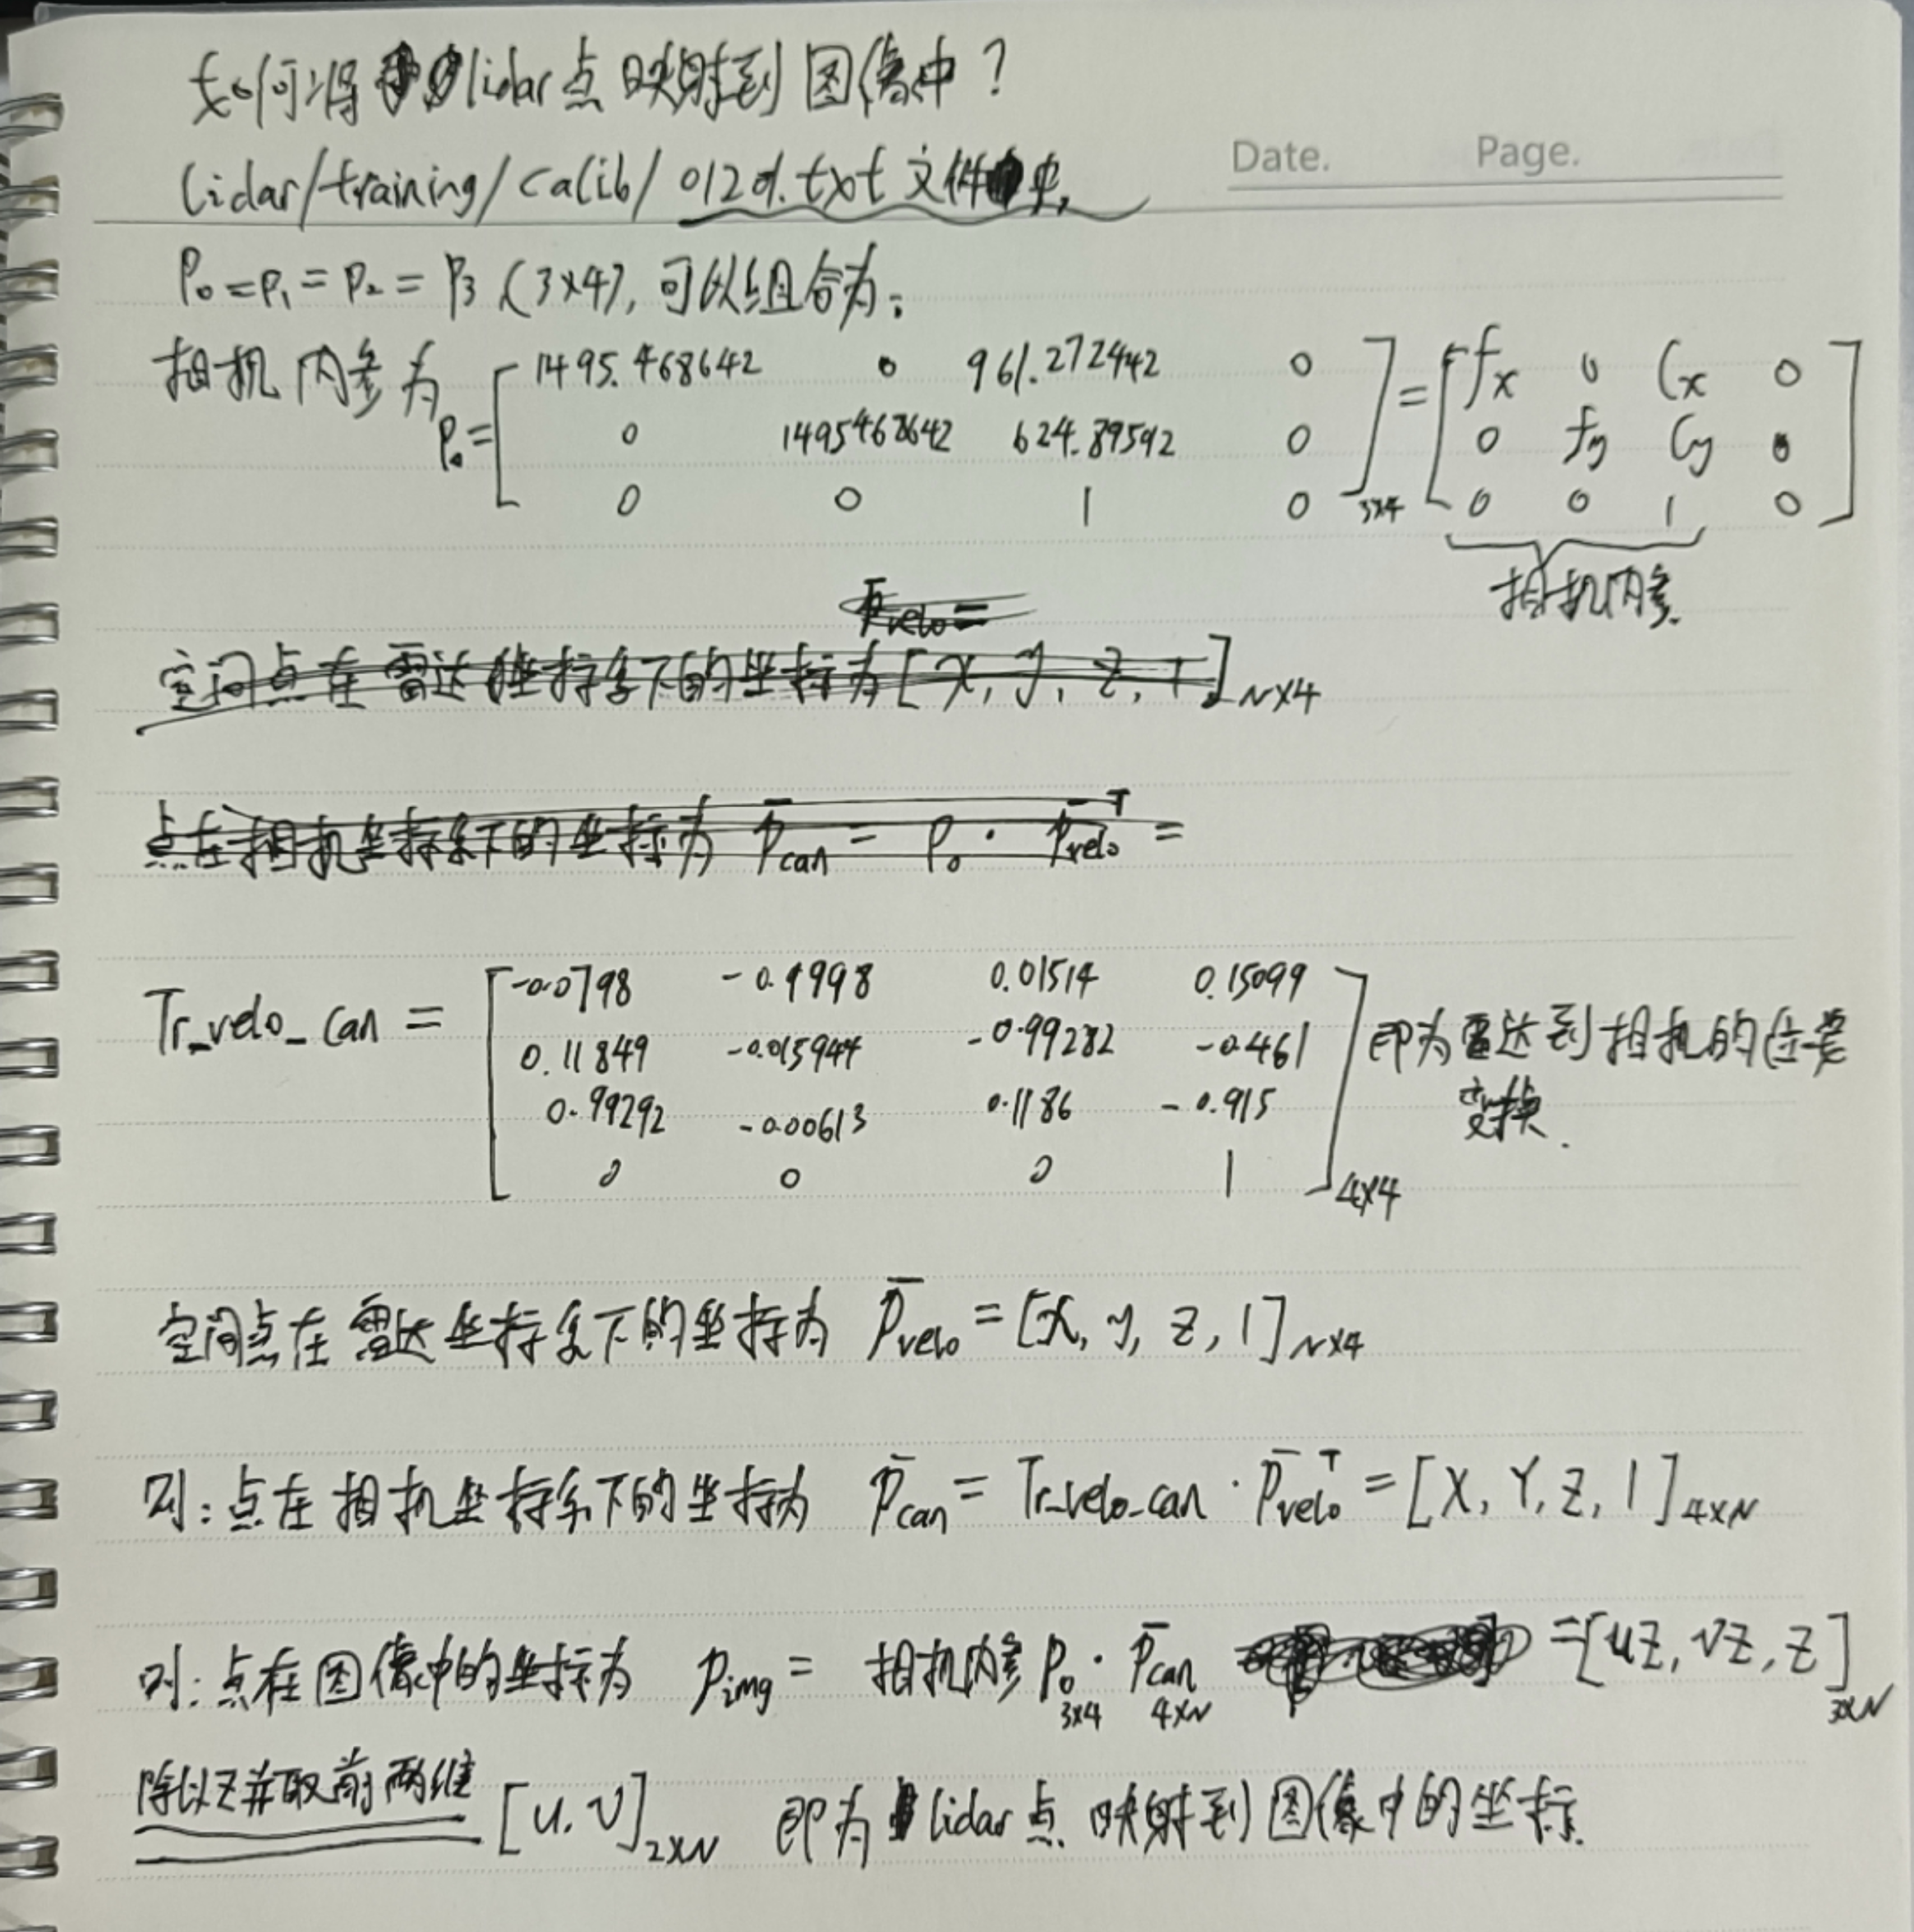 如何将lidar点映射到图像中?
Date. Page.
lidar/training/calib/0120.txt 文件中,
P₀=P₁=P₂=P₃ (3×4), 可以组合为:
相机内参为 P₀= [1495.468642 0 961.272442 0 = [fx 0 Cx 0
0 1495468642 624.89592 0 0 fy Cy 0
0 0 1 0]3×4 0 0 1 0]
相机内参.
P̄velo =
空间点在雷达坐标系下的坐标为[x, y, z, 1]N×4
点在相机坐标系下的坐标为 P̄can = P₀ · P̄veloᵀ =
Tr_velo_can = [-0.0798 -0.9998 0.01514 0.15099
0.11849 -0.015944 -0.99282 -0.461
0.99292 -0.00613 0.1186 -0.915
0 0 0 1]4×4 即为雷达到相机的位姿
变换.
空间点在雷达坐标系下的坐标为 P̄velo = [x, y, z, 1]N×4
则:点在相机坐标系下的坐标为 P̄can = Tr_velo_can · P̄veloᵀ = [X, Y, Z, 1]4×N
则:点在图像中的坐标为 Pimg = 相机内参 P₀ · P̄can = [uZ, vZ, Z]3×N
3×4 4×N
除以Z并取前两维 [u, v]2×N 即为lidar点映射到图像中的坐标.